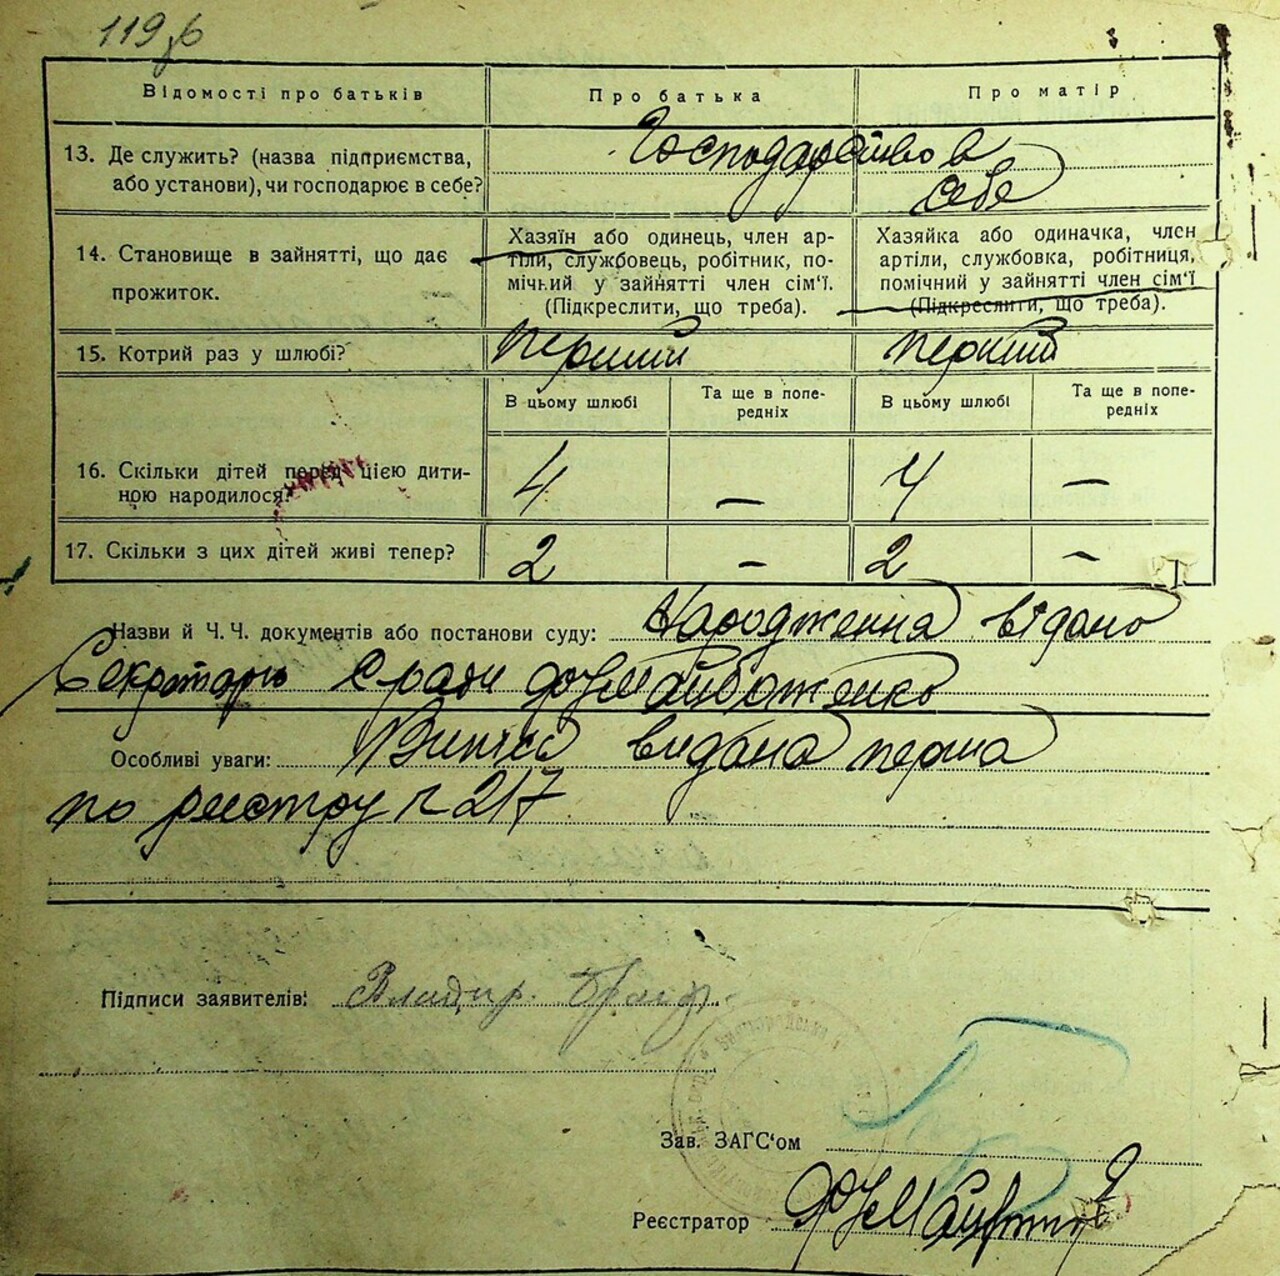 119
Відомості про батьків
Про батька
Про матір
13. Де служить? (назва підприємства,
або установи), чи господарює в себе?
Господарство в
себе
14. Становище в зайнятті, що дає
прожиток.
Хазяїн або одинець, член ар-
тіли, службовець, робітник, по-
мічний у зайнятті член сім'ї.
(Підкреслити, що треба).
Хазяйка або одиначка, член
артіли, службовка, робітниця,
помічний у зайнятті член сім'ї
(Підкреслити, що треба).
15. Котрий раз у шлюбі?
перший
перший
В цьому шлюбі
Та ще в попе-
редніх
В цьому шлюбі
Та ще в попе-
редніх
16. Скільки дітей перед цією дити-
ною народилося?
4 – 4 –
17. Скільки з цих дітей живі тепер?
2 – 2 –
Назви й Ч. Ч. документів або постанови суду: Народження відано
Секретарь С ради
Особливі уваги: Випись видана перша
по реестру № 217
Підписи заявителів:
Зав. ЗАГС'ом
Реєстратор